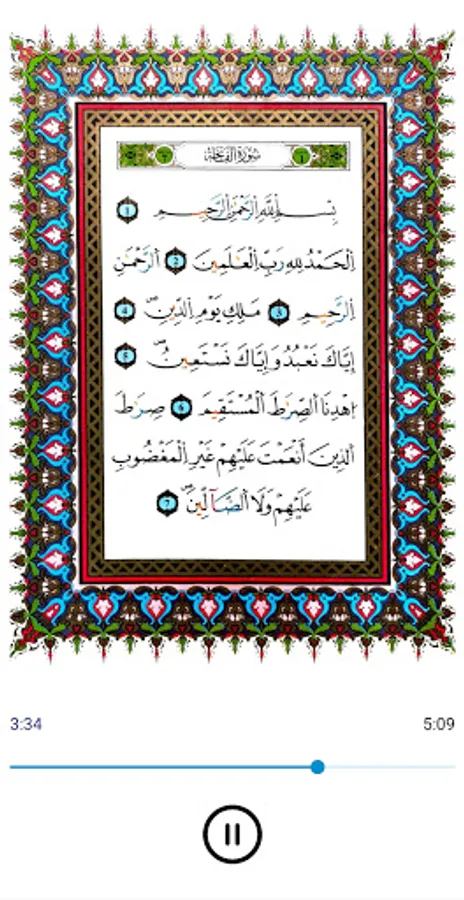 سُورَةُ الفَاتِحَة
بِسْمِ اِللَّهِ اِلرَّحْمَٰنِ اِلرَّحِيمِ 1
اِلْحَمْدُ لِلهِ رَبِّ اِلْعَٰلَمِينَ 2 اَلرَّحْمَٰنِ
اِلرَّحِيمِ 3 مَلِكِ يَوْمِ اِلدِّينِ 4
إِيَّاكَ نَعْبُدُ وَإِيَّاكَ نَسْتَعِينُ 5
اِهْدِنَا اَلصِّرَٰطَ اَلْمُسْتَقِيمَ 6 صِرَٰطَ
اَلذِينَ أَنْعَمْتَ عَلَيْهِمْ غَيْرِ اِلْمَغْضُوبِ
عَلَيْهِمْ وَلَا اَلضَّآلِّينَ 7
3:34 5:09